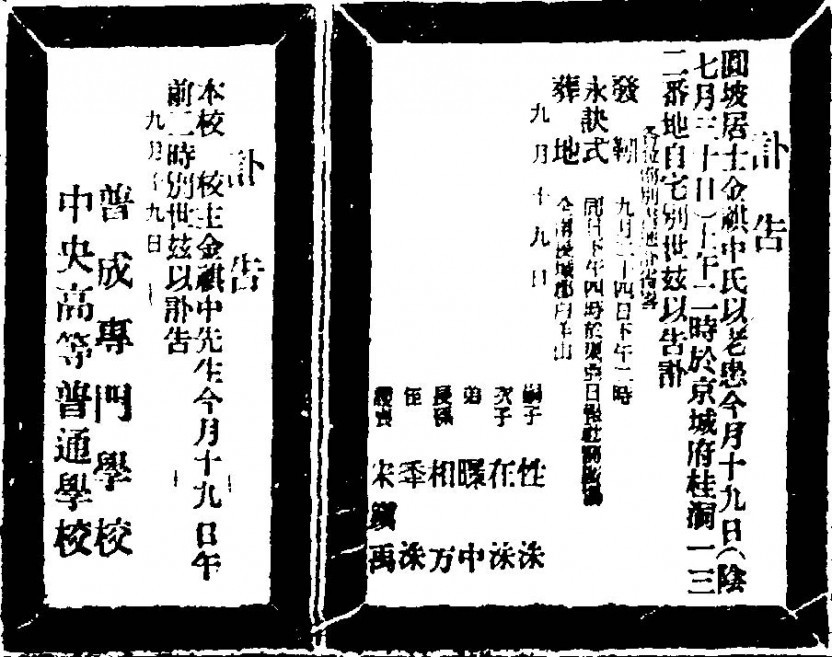 訃告
圓坡居士金祺中氏以老患今月十九日(陰
七月三十日)上午二時於京城府桂洞一三
二番地自宅別世玆以告訃
發靷 九月二十四日下午二時
永訣式 同日下午四時於東亞日報社
葬地 全南長城郡白羊山
九月十九日
嗣子 性洙
次子 在洙
弟 暻中
長孫 相万
侄 洙
護喪 宋鎭禹
訃告
本校 校主金祺中先生今月十九日午
前二時別世玆以訃告
九月十九日
普成專門學校
中央高等普通學校